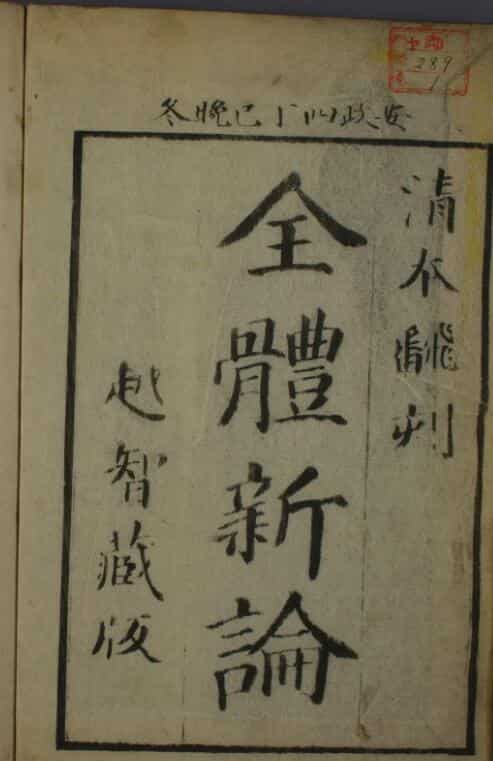 安政四丁巳晩冬
清本飜刻
全體新論
越智藏版
289
1